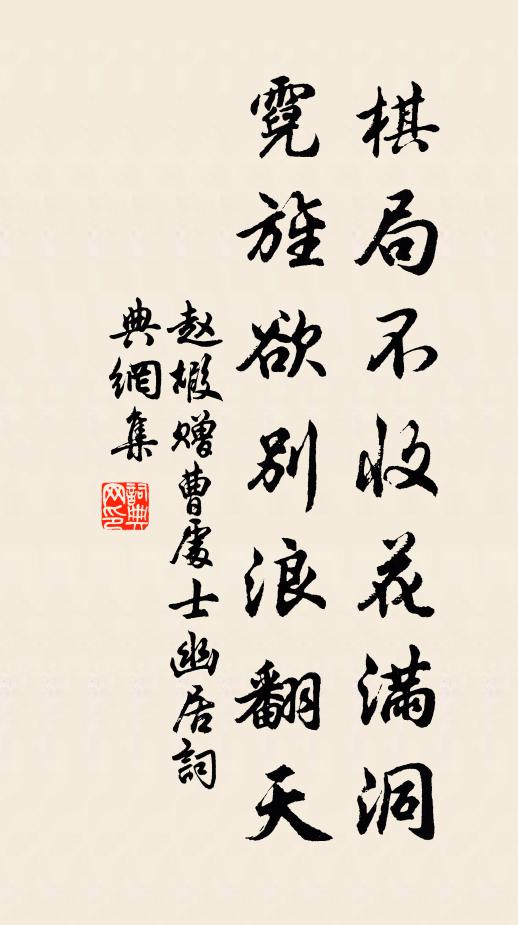 棋局不收花满洞
霓旌欲别浪翻天
赵嘏赠曹处士幽居词
典網集
詞典
网印